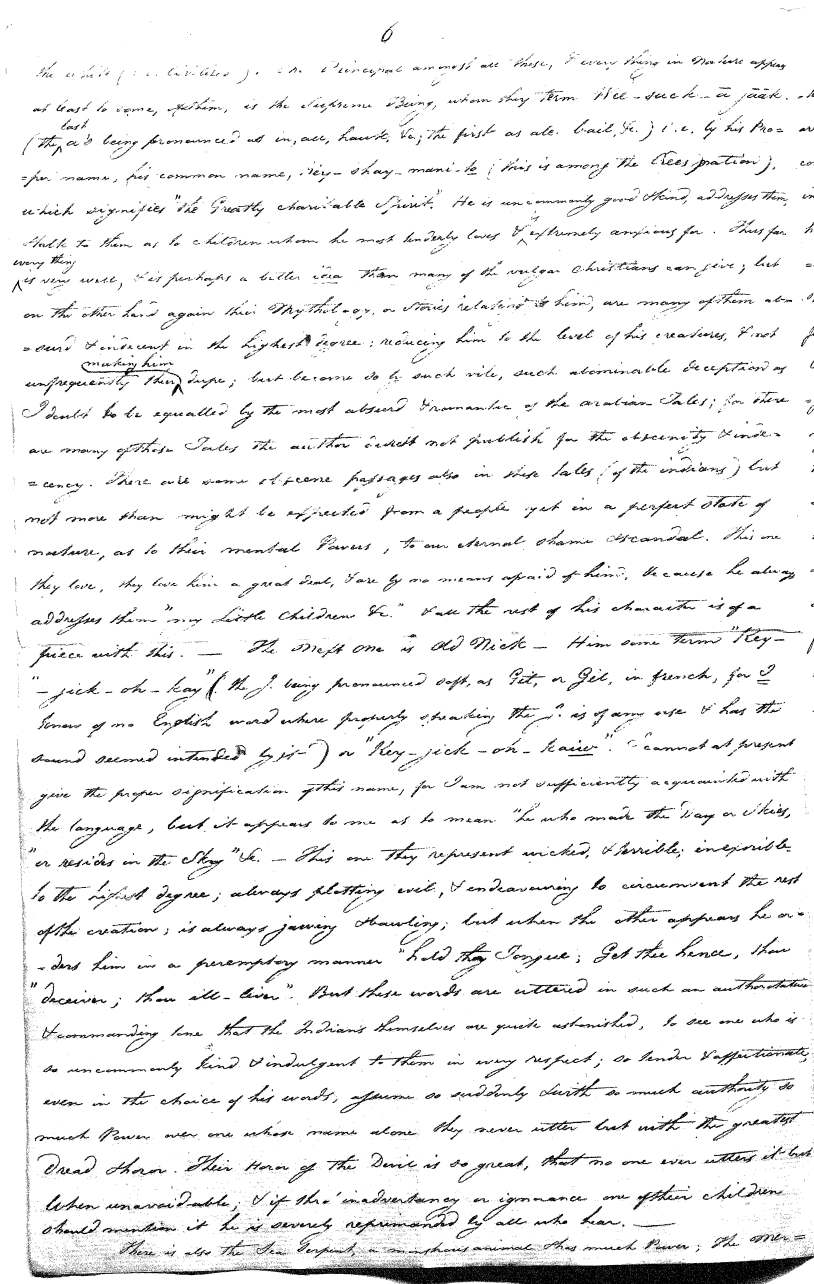 6
the white (i.e. civilized). The Principal amongst all these, & every thing in Nature appear
at least to some, & to him, is the Supreme Being, whom they term Wee-suck-ā jāāk.
last
(the a's being pronounced as in, all, hawk, &c; the first as ale, bail, &c.) i.e. by his Pro=
=per name, his common name, Key-shay-mani-to (this is among the Crees nation),
which signifies "the Greatly charitable Spirit". He is uncommonly good & kind, addresses them,
& talk to them as to children whom he most tenderly loves & is extremely anxious for. Thus far
every thing
is very well, & is perhaps a better idea than many of the vulgar christians can give; but
on the other hand again their Mythology, or stories relating to him, are many of them ab=
=surd & indecent in the highest degree: reducing him to the level of his creatures, & not
making him
unfrequently their dupe; but become so by such vile, such abominable deception as
I doubt to be equalled by the most absurd & romantic of the arabian Tales; for there
are many of these Tales the author durst not publish for the obscenity & inde=
=cency. There are some obscene passages also in these tales (of the indians) but
not more than might be expected from a people yet in a perfect state of
nature, as to their mental Powers, to our eternal shame & scandal. This one
they love, they love him a great deal, & are by no means afraid of him, because he always
addresses them "my Little Children &c." & all the rest of his character is of a
piece with this. — The next one is Old Nick — Him some term "Key-
"-jick-oh-kay" (the J. being pronounced soft, as Git, or Gil, in french, for I
know of no English word where properly speaking the j. is of any use & has the
sound seemed intended by it) or "Key-jick-oh-kaiw". I cannot at present
give the proper signification of this name, for I am not sufficiently acquainted with
the language, but it appears to me as to mean "he who made the Day or Skies,
"or resides in the Sky" &c. — This one they represent wicked, & terrible, inexorible
to the highest degree; always plotting evil, & endeavouring to circumvent the rest
of the creation; is always jawing & bawling; but when the other appears he or=
=ders him in a peremptory manner "hold thy Tongue; Get thee hence, thou
"deceiver; thou ill-liver". But these words are uttered in such an authoritative
& commanding tone that the Indians themselves are quite astonished, to see one who is
so uncommonly kind & indulgent to them in every respect; so tender & affectionate,
even in the choice of his words, assume so suddenly & with so much authority so
much Power over one whose name alone they never utter but with the greatest
Dread & horor. Their Horor of the Devil is so great, that no one ever utters it but
when unavoidable; & if thro' inadvertancy or ignorance one of their children
should mention it he is severely reprimanded by all who hear. —
There is also the Sea Serpent, a monstrous animal & has much Power; The Mer=